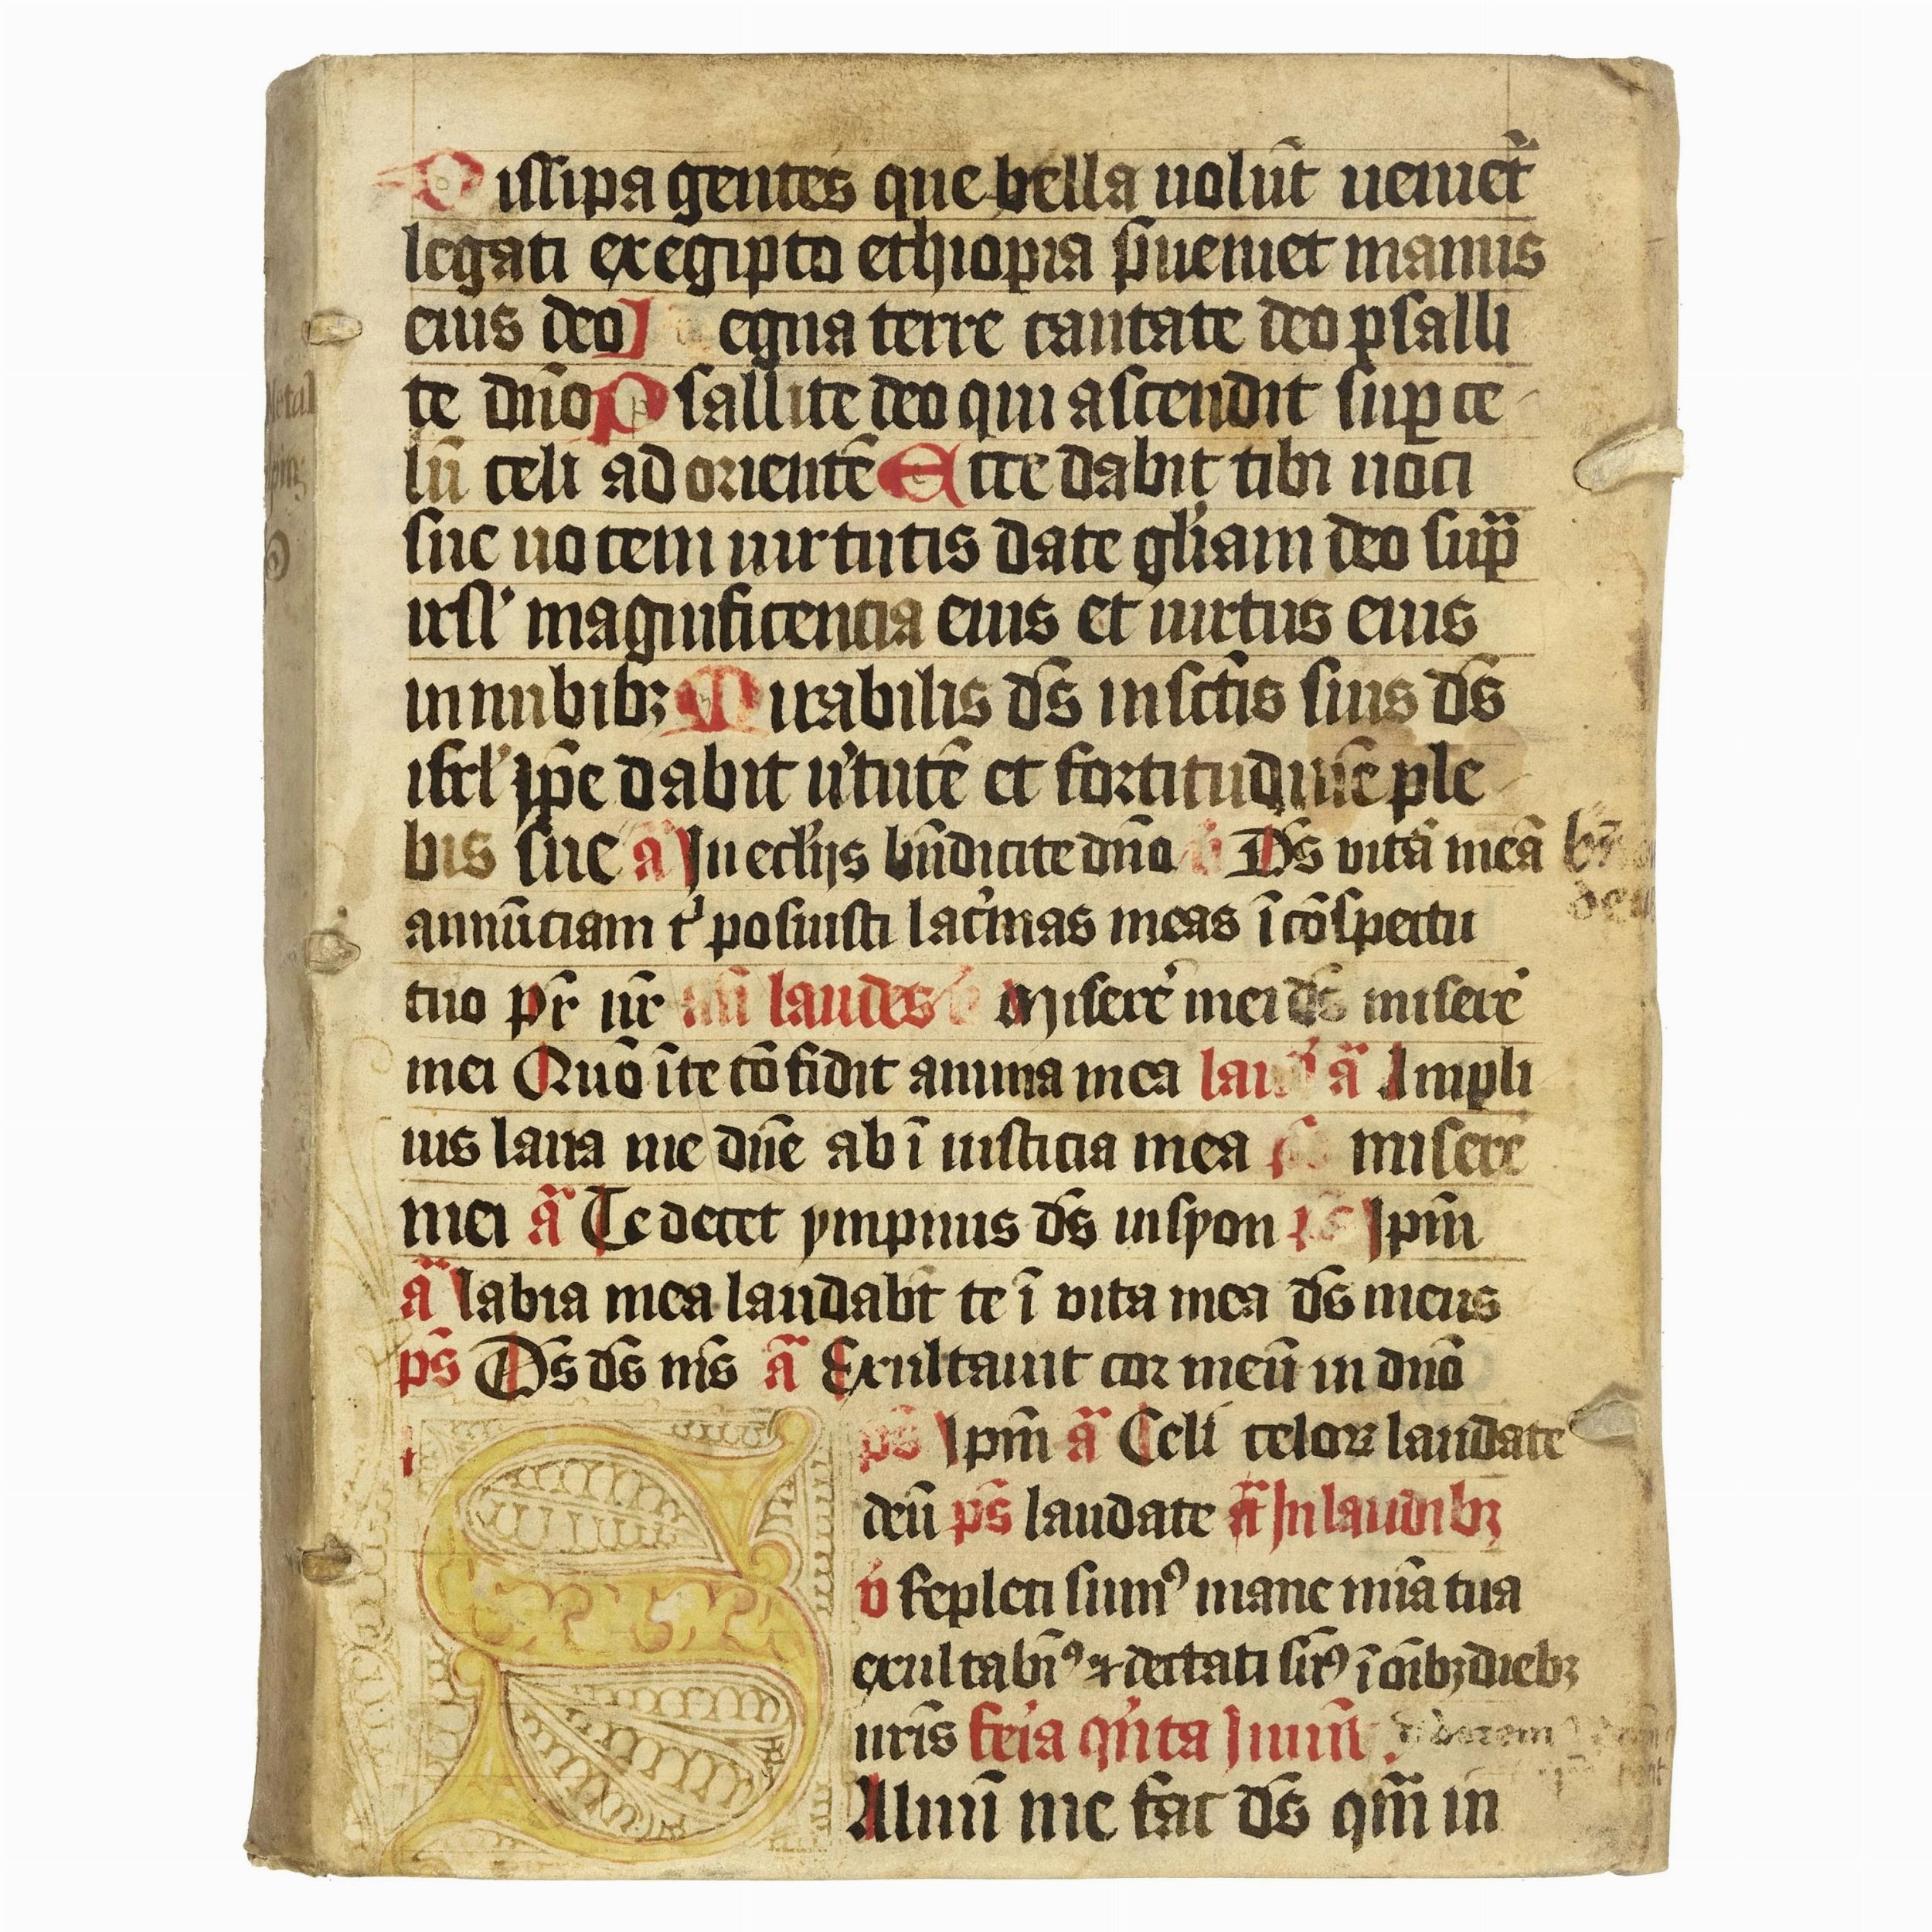 Dissipa gentes que bella uolūt uenie&#773;t
legati ex egipto ethiopia p̄ueniet manus
eius deo egna terre cantate deo psalli
te dn̄o Psallite deo qui ascendit sup ce
lū celi ad orientē Ecce dabit tibi uoci
sue uocem uirtutis date gl'iam deo sup̄
isrl' magnificencia eius et uirtus eius
in nubibꝫ Mirabilis ds̄ in sctīs suis ds̄
isrl' ip̄e dabit u'tutē et fortitudinē ple
bis sue a In eccl'ijs bn̄dicite dn̄o Ds̄ vitā meā
annūciam t' posuisti lac'mas meas ī cōspectu
tuo pr̄ nr̄ laudes Miserē mei ds̄ miserē
mei Quō īte cōfidit anima mea a Ampli
ius laua me dn̄e ab īiusticia mea miserē
mei ā Te decet ympnus ds̄ in syon Ip̄m
ā labia mea laudabt̄ te ī vita mea ds̄ meus
ps̄ Ds̄ ds̄ ms̄ ā Exultauit cor meū in dn̄o
ps̄ Ip̄m ā Celi celoꝝ laudate
deū ps̄ laudate ā In laudibꝫ
v Repleti sumꝰ mane mīa tua
exultabīꝰ ⁊ dectati sūꝰ ī oībꝫ diebꝫ
nrīs fe'ia q'nta
Aluū me fac ds̄ qm̄ in